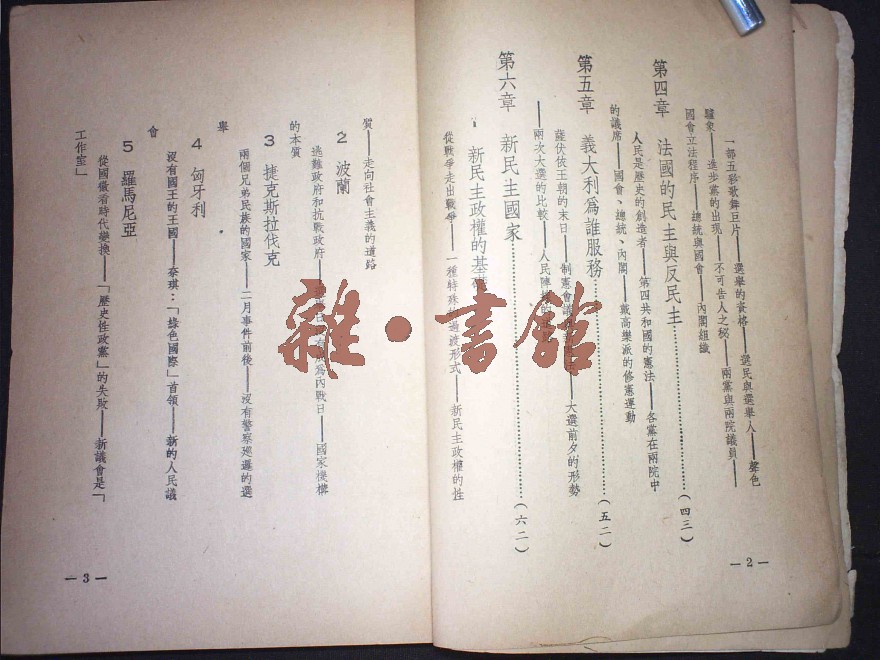 一部五彩歌舞巨片——選舉的資格——選民與選舉人——聲色
驢象——進步黨的出現——不可告人之秘——兩黨與兩院議員——
國會立法程序——總統與國會——內閣組織
第四章 法國的民主與反民主………(四三)
人民是歷史的創造者——第四共和國的憲法——各黨在兩院中
的議席——國會、總統、內閣——戴高樂派的修憲運動
第五章 義大利爲誰服務………(五二)
薩伏依王朝的末日——制憲會議 大選前夕的形勢
——兩次大選的比較——人民陣線的
第六章 新民主國家………(六二)
1 新民主政權的基礎
從戰爭走出戰爭——一種特殊的過渡形式——新民主政權的性
—2—
質——走向社會主義的道路
2 波蘭
逃難政府和抗戰政府—— 日 爲內戰日——國家機構
的本質
3 捷克斯拉伐克
兩個兄弟民族的國家——二月事件前後——沒有警察廵邏的選
舉
4 匈牙利
沒有國王的王國——泰琪：「綠色國際」首領——新的人民議
會
5 羅馬尼亞
從國徽看時代變換——「歷史性政黨」的失敗——新議會是「
工作室」
—3—
雜·書館